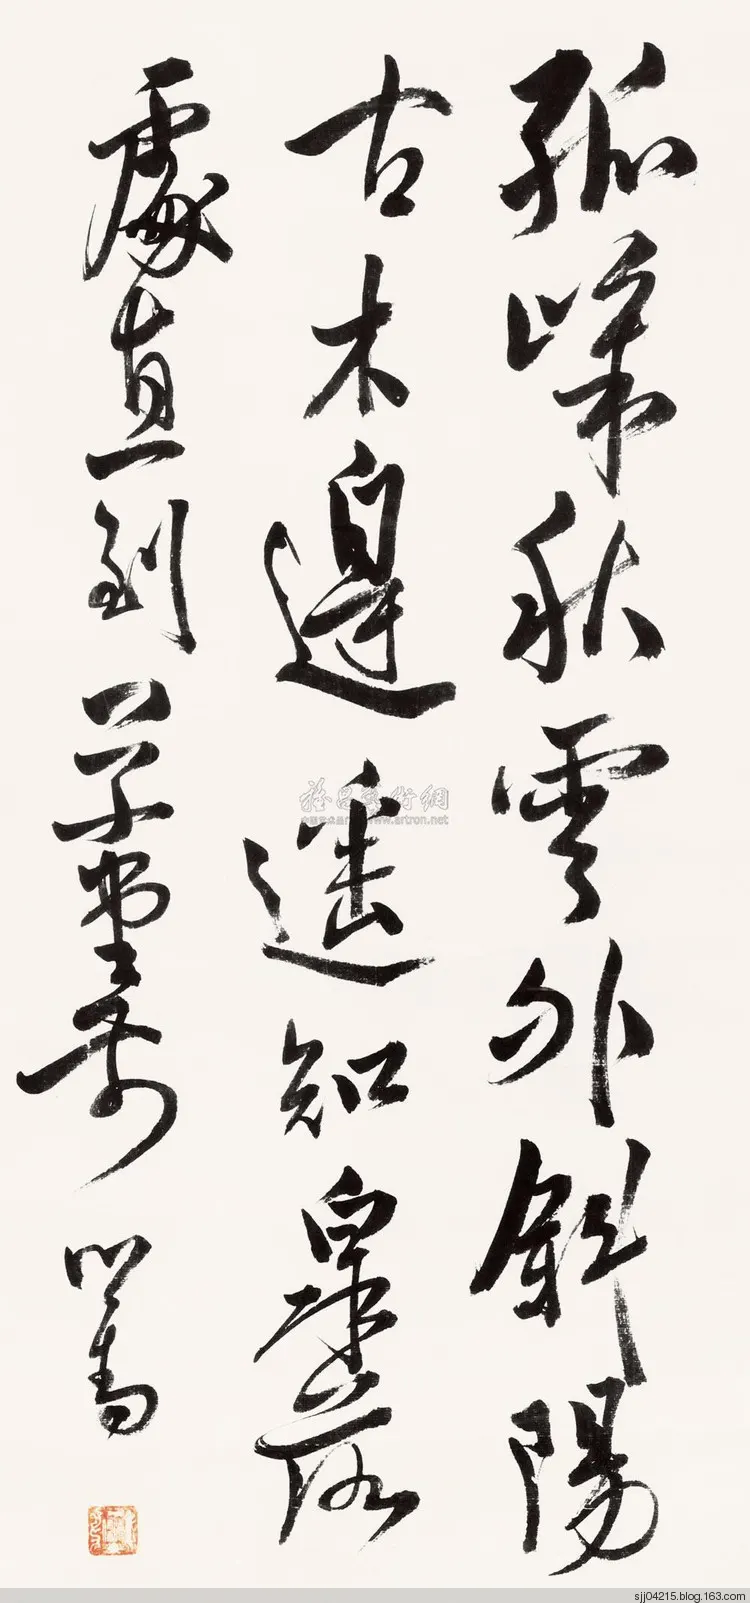 孤峰秋雲外斜陽
古木邊遙知泉落
處直到草堂前
心畬
雅昌藝術網
www.artron.net
sjj04215.blog.163.com